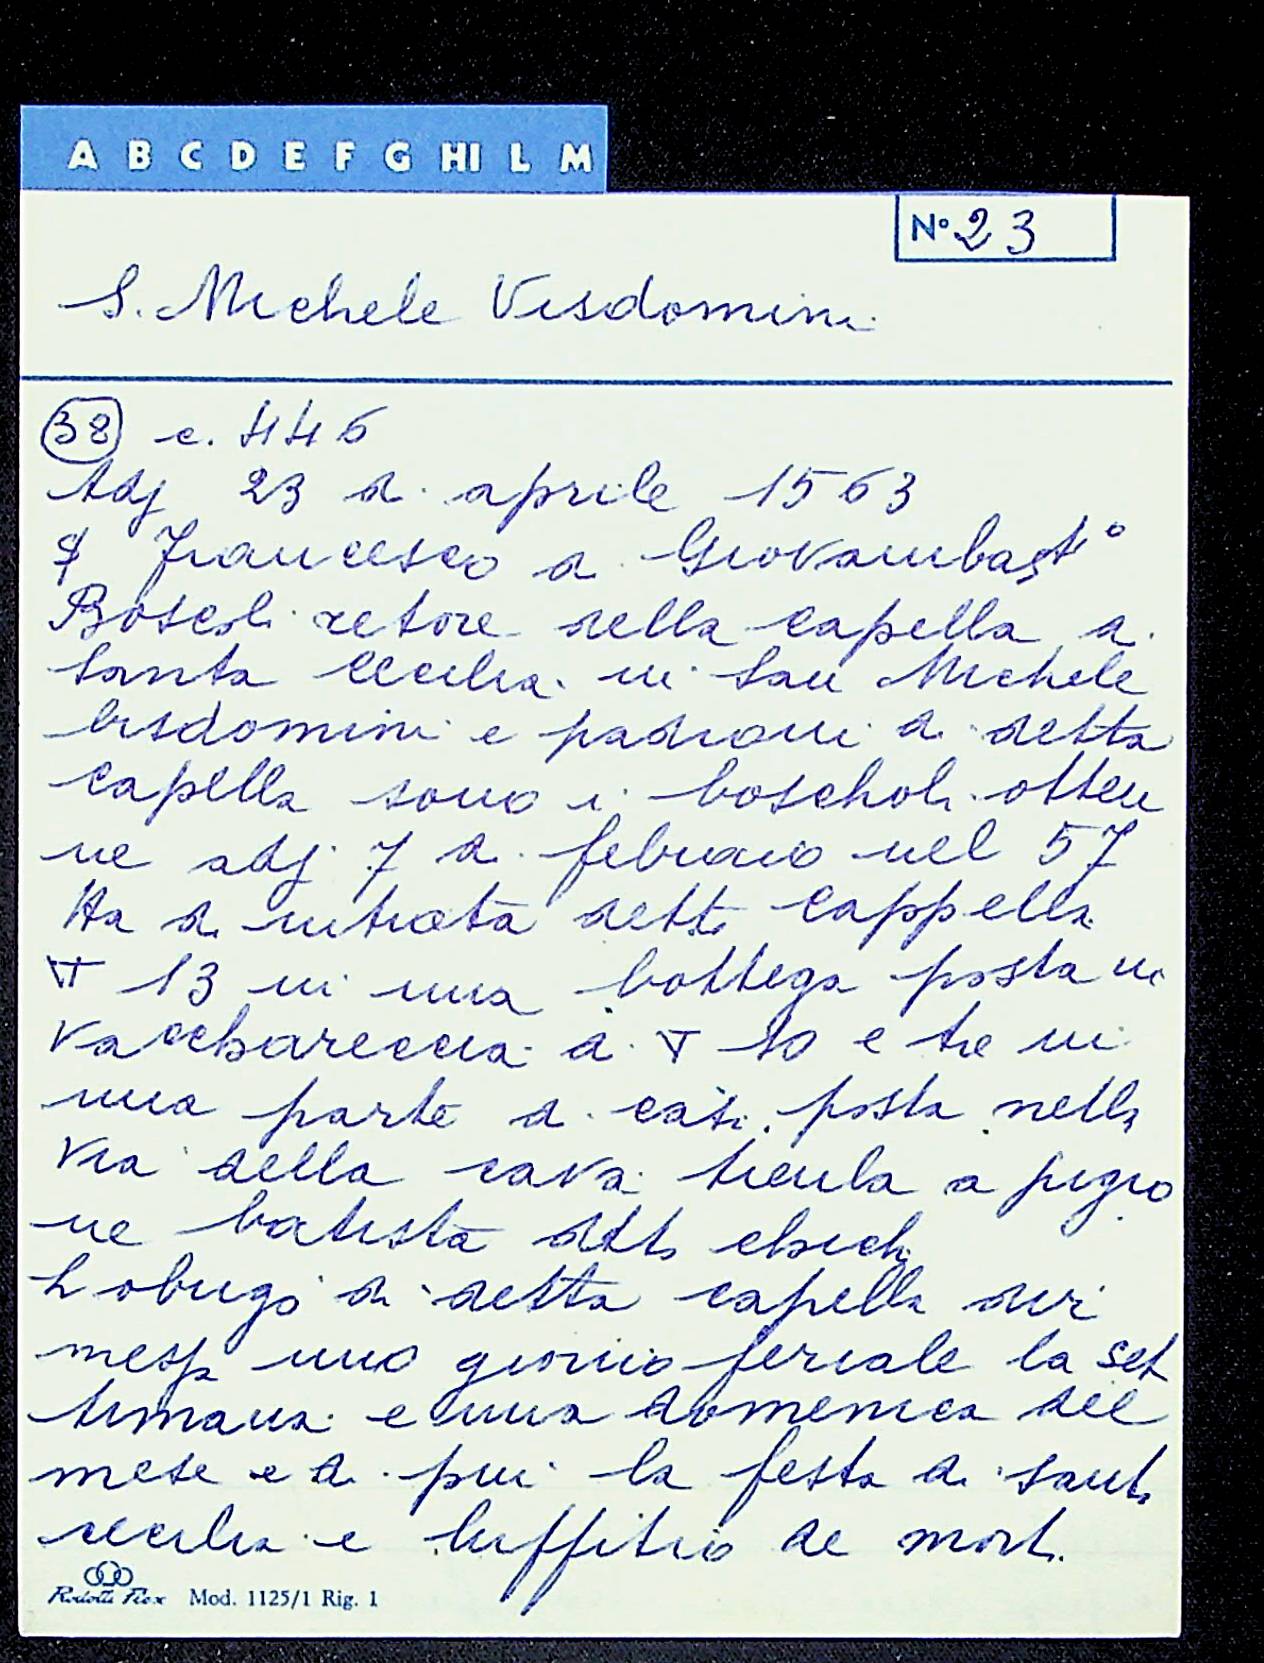 A B C D E F G HI L M
N° 23
S. Michele Visdomini
38 c. 446
Adj 23 di aprile 1563
Francesco di Giovambast°
Boscoli retore della capella di
Santa Cecilia in San Michele
bisdomini e padroni di detta
capella sono i boscholi otten
ne adj 7 di febraio nel 57
Ha di intrata detta cappella
13 in una bottega posta in
Vacchareccia di 10 e tre in
una parte di casa posta nella
via della cava tienla a pigio
ne batista
L obrigo di detta capella dir
messa uno giorno feriale la set
timana e una domenica del
mese e di piu la festa di santa
cecilia e luffitio de morti
Mod. 1125/1 Rig. 1